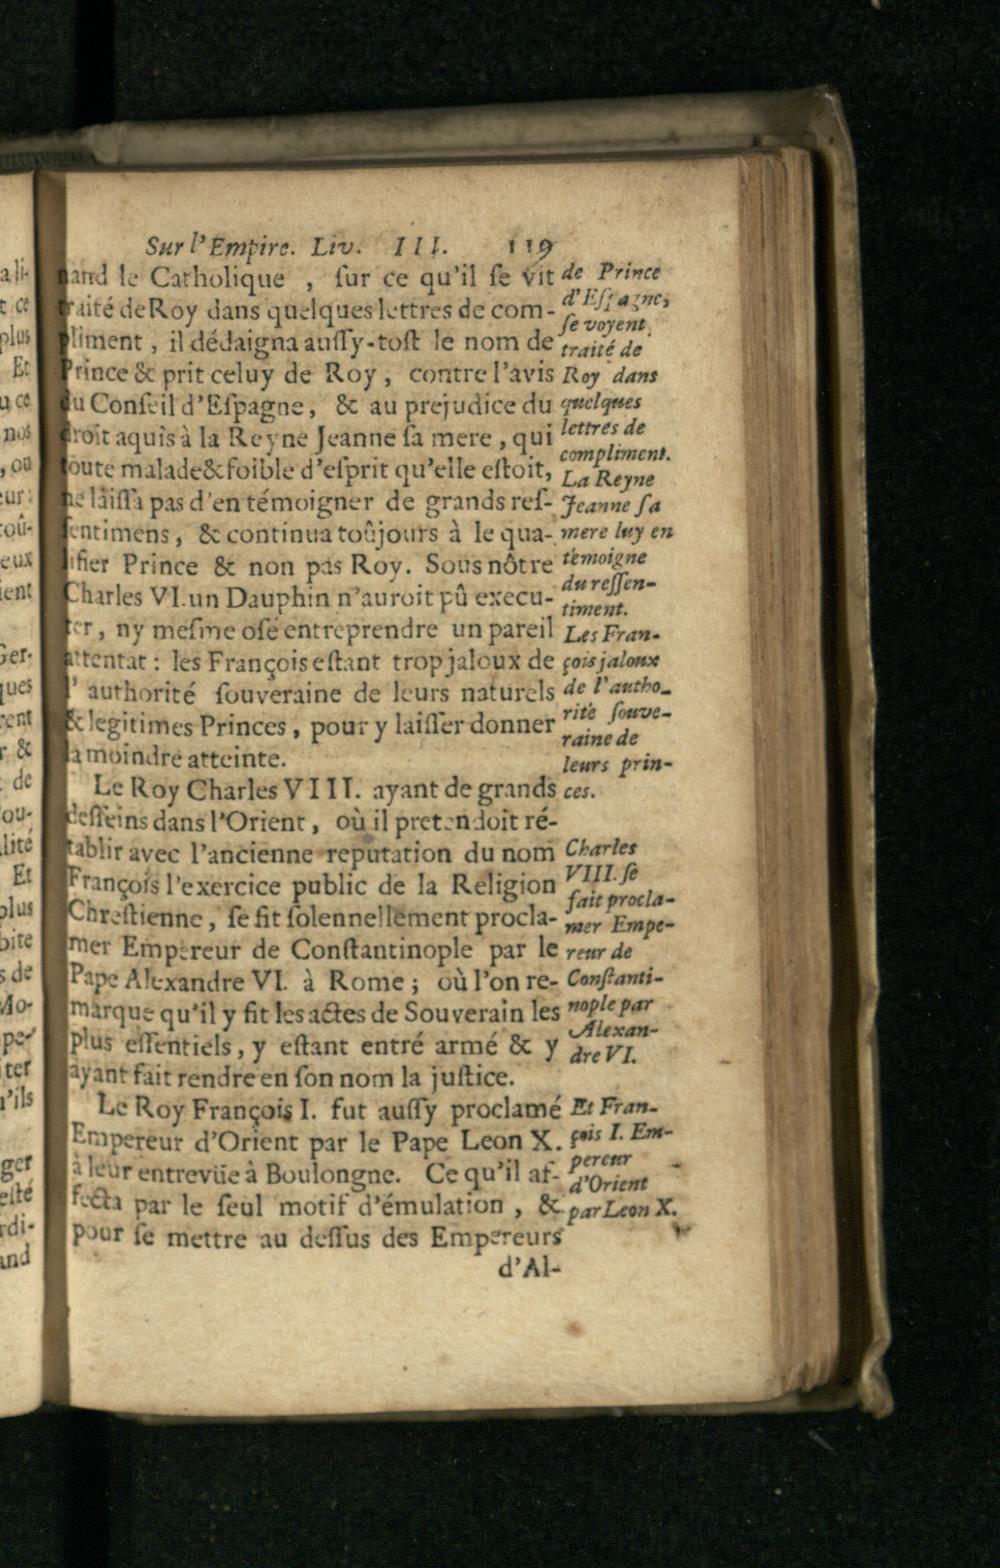 Sur l'Empire. Liv. III. 119
nand le Catholique , ſur ce qu'il ſe vit
traité de Roy dans quelques lettres de com-
pliment , il dédaigna auſſy-toſt le nom de
Prince & prit celuy de Roy , contre l'avis
du Conſeil d'Eſpagne, & au prejudice du
droit aquis à la Reyne Jeanne ſa mere , qui
toute malade & foible d'eſprit qu'elle eſtoit,
ne laiſſa pas d'en témoigner de grands reſ-
ſentimens, & continua toûjours à le qua-
lifier Prince & non pas Roy. Sous nôtre
Charles VI. un Dauphin n'auroit pû execu-
ter, ny meſme oſé entreprendre un pareil
attentat : les François eſtant trop jaloux de
l' authorité ſouveraine de leurs naturels
& legitimes Princes, pour y laiſſer donner
la moindre atteinte.
Le Roy Charles VIII. ayant de grands
deſſeins dans l'Orient, où il pretendoit ré-
tablir avec l'ancienne reputation du nom
François l'exercice public de la Religion
Chreſtienne, ſe fit ſolennellement procla-
mer Empereur de Conſtantinople par le
Pape Alexandre VI. à Rome ; où l'on re-
marque qu'il y fit les actes de Souverain les
plus eſſentiels, y eſtant entré armé & y
ayant fait rendre en ſon nom la juſtice.
Le Roy François I. fut auſſy proclamé
Empereur d'Orient par le Pape Leon X.
à leur entrevüe à Boulongne. Ce qu'il af-
fecta par le ſeul motif d'émulation , &
pour ſe mettre au deſſus des Empereurs
d'Al-
de Prince
d'Eſpagne,
ſe voyent
traité de
Roy dans
quelques
lettres de
compliment.
La Reyne
Jeanne ſa
mere luy en
témoigne
du reſſen-
timent.
Les Fran-
çois jaloux
de l'autho-
rité ſouve-
raine de
leurs prin-
ces.
Charles
VIII. ſe
fait procla-
mer Empe-
reur de
Conſtanti-
nople par
Alexan-
dre VI.
Et Fran-
çois I. Em-
pereur
d'Orient
par Leon X.